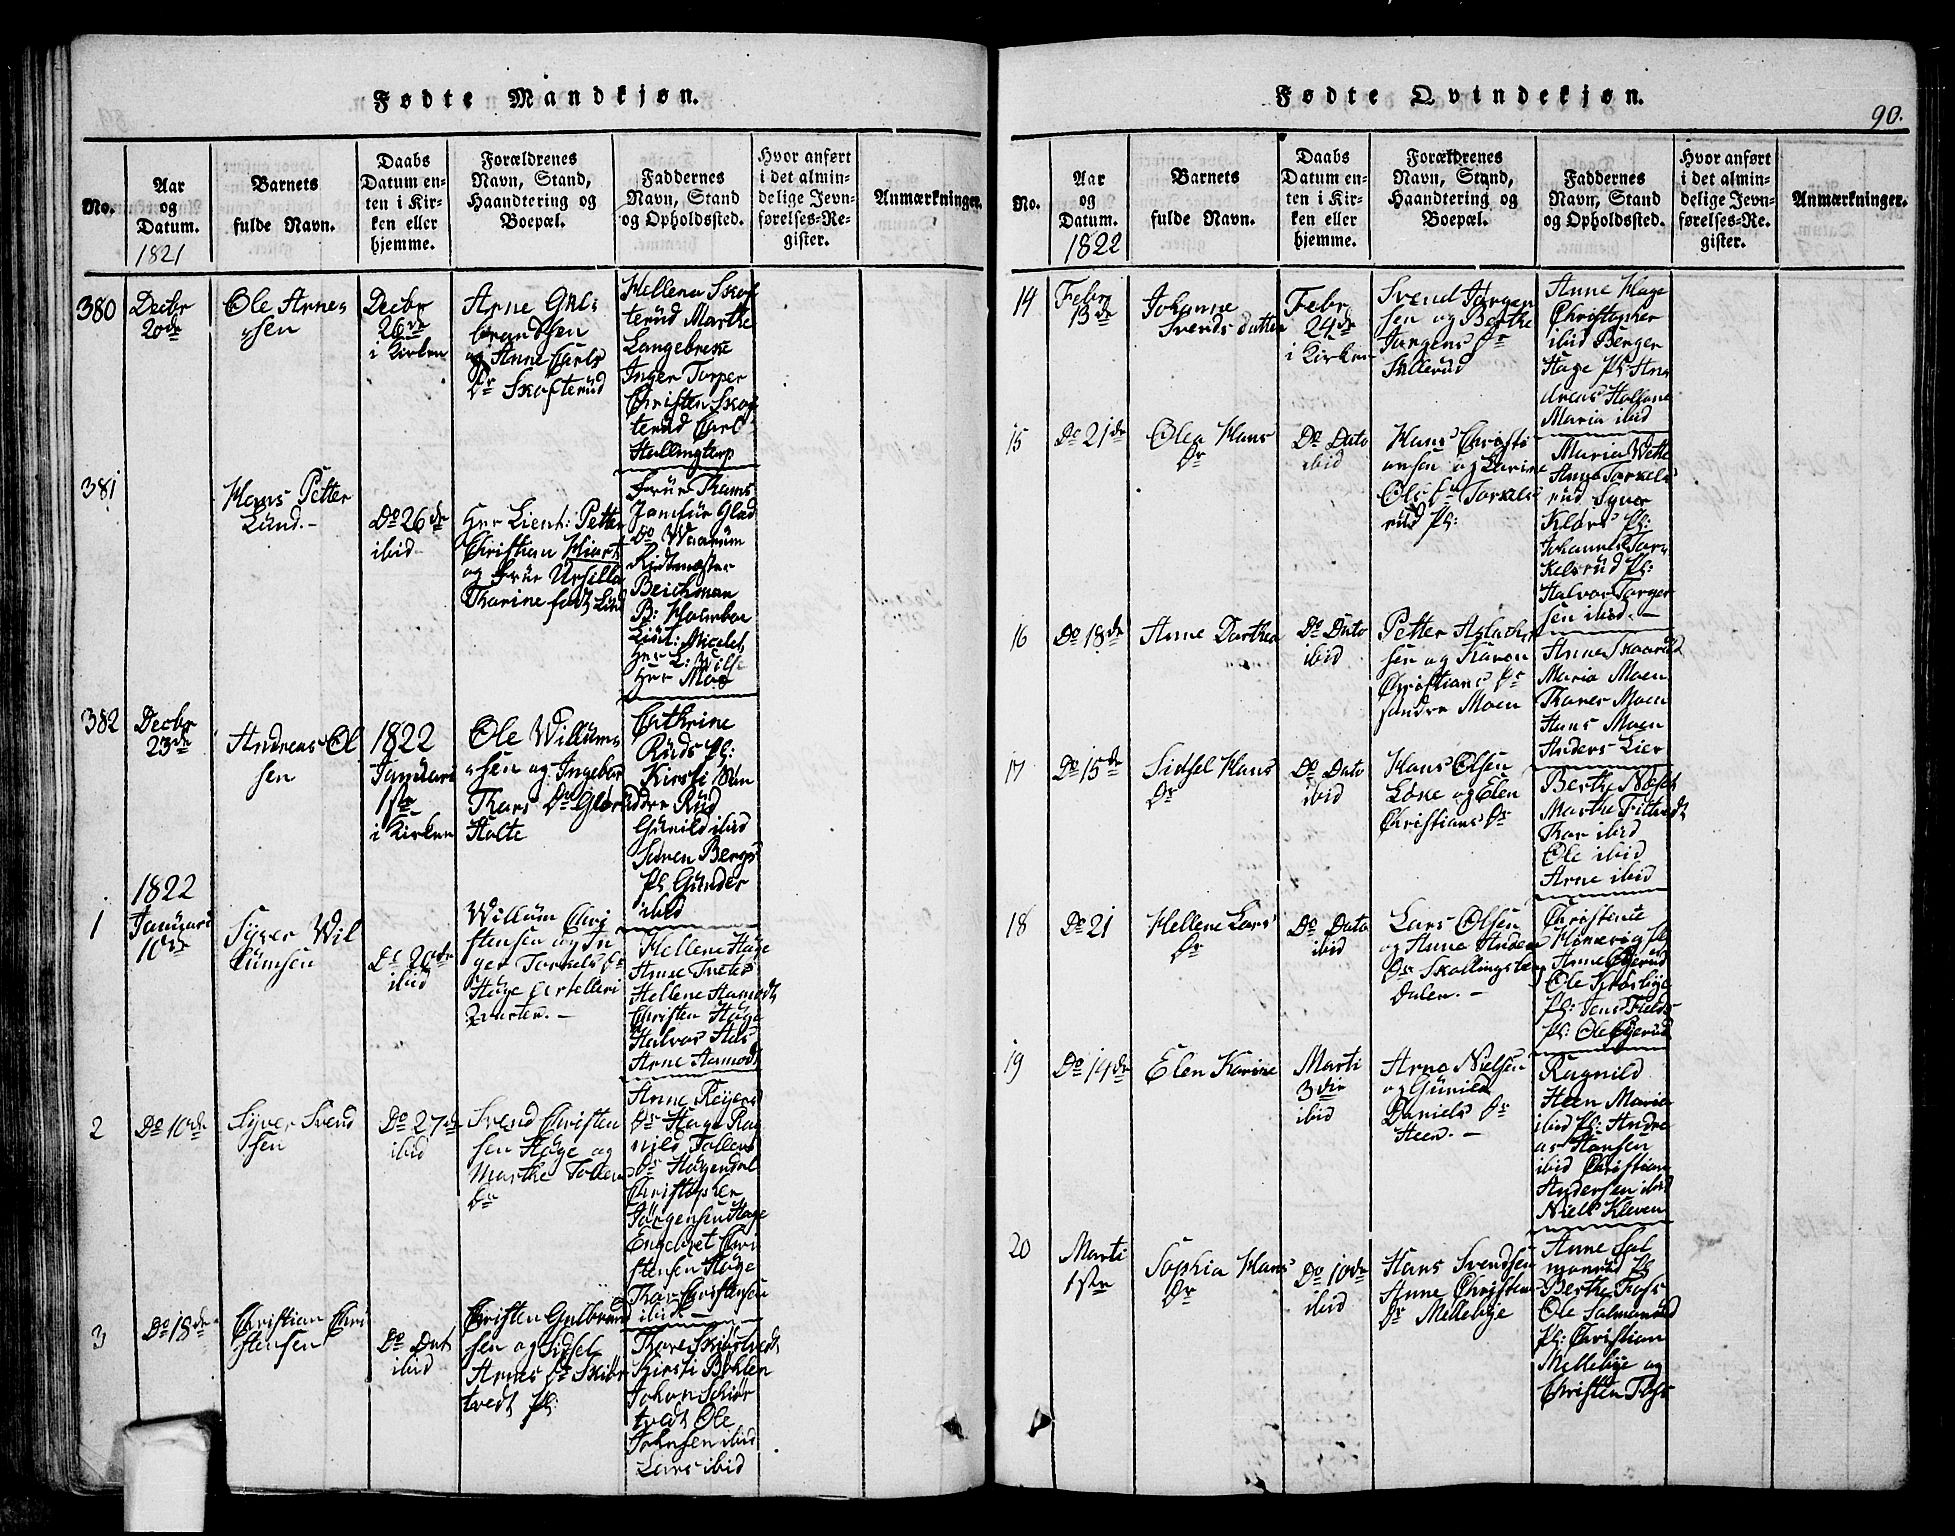 Fødte Mandkjøn.
No.
Aar
og
Datum.
1821
Barnets
fulde Navn.
Daabs
Datum en-
ten i Kir-
ken eller
hjemme.
Forældrenes
Navn, Stand,
Haandtering og
Boepæl.
Faddernes
Navn, Stand
og Opholdssted.
Hvor anført
i det almin-
delige Jevn-
førelses-Re-
gister.
Anmærkninger.
380
Decbr
20de
Ole Arne-
sen
Decbr
26de
i Kirken
Arne Gul-
brandsen
og Anne Carls
Dr Skofterüd
Hellena Skof
terüd Marthe
Langebrek
Inger Torper
Christen Skof
terüd Carl
Hallingtorp
381
Hans Petter
Lünd.-
Do 26de
ibid
Her Lieut: Petter
Christian
og Frue Ursilla
Tharine født Lünd
Frue Thams
Jomfür Glad
Do Waarüm
Ridtmester
Beichman
B: Holmboe
Lieut: Micelet
Her L: Wilse
Her Moe
382
Decbr
23de
Andreas Ol
sen
1822
Januari
1ste
i Kirken
Ole Willums
sen og Ingebor
Thars Dr Glorüd
Holte
Cathrine
Rüds pl:
Kirsti Sün
dre Rüd
Günild ibid
Søren Bergs
pl Günder
ibid
1822
1
Januari
10de
Syver Wil
lümsen
Do 20de
ibid
Willüm Chri
stensen og In
ger Torkels Dr
Hage Artilleri
Qvarteer.-
Hellene Hage
Anne Tveter
Hellene Aamodt
Christen Hage
Halvor Aas
Arne Aamodt
2
Do 10de
Syver Svend
sen
Do 27de
ibid
Svend Christen
sen Hage og
Marthe Tollens
Dr
Anne Reyers
Dr Hage Rag
nild Tollens
Dr Hagendal
Christopher
Jørgensen Hage
Engebret Chri
stensen Hage
Thor Christensen
ibid
3
Do 18de
Christian Chri
stensen
Do Dat
ibid
Christen Gulbrand
sen og Sidsel
Arnes Dr Skiør
tvedt pl:
Thore Skiørtvedt
Kirsti Bøhlen
Johan Skiør
tvedt Ole
Johnsen ibid
Lars ibid
Fødte Qvindekjøn.
90.
No.
Aar
og
Datum.
1822
Barnets
fulde Navn.
Daabs
Datum en-
ten i Kir-
ken eller
hjemme.
Forældrenes
Navn, Stand,
Haandtering og
Boepæl.
Faddernes
Navn, Stand
og Opholdssted.
Hvor anført
i det almin-
delige Jevn-
førelses-Re-
gister.
Anmærkninger.
14
Febr
13de
Johanne
Svends datter
Febr
24de
i Kirken
Svend Jørgen
sen og Berthe
Jørgens Dr
Sillerüd
Anne Hage
Christopher
ibid Berger
Hage pl: An
dreas
Maria ibid
15
Do 21de
Olea Hans
Dr
Do Dato
ibid
Hans Christi
ansen og Karine
Ols Dr Torkels
rüd pl:
Maria Wette
Anne Torkels
rüd Syver
Kløvs pl:
Johannes Tor
kelsrüd pl:
Halvor Torger
sen ibid.-
16
Do 18de
Anne Dorthea
Do Dato
ibid
Petter Aslach
sen og Karen
Christians Dr
søndre Moen
Anne Skaarüd
Maria Moen
Thares Moen
Hans Moen
Anders Lier
17
Do 15de
Sidsel Hans
Dr
Do Dato
ibid
Hans Olsen
Løne og Elen
Christians Dr
Berthe
Marthe
Thor ibid
Ole ibid
Arne ibid
18
Do 21
Hellene Lars
Dr
Do Dato
ibid
Lars Olsen
og Anne Anders
Dr Skallingsberg
Dalen.-
Christence
pl
Anne Bjerüd
Ole
pl: Jens Fields
pl: Ole Bjerüd
19
Do 14de
Elen Karine
Marti
3die
ibid
Arne Nielsen
og Günild
Daniels Dr
Heen.-
Ragnild
Heen Maria
ibid pl: Andre
as Hansen
ibid Christian
Andersen ibid
Niels Kleven
20
Marti
1ste
Sophia Hans
Dr
Do 10de
ibid
Hans Svendsen
Anne Christens
Dr Mellebye
Anne Sal
monrüd pl
Berthe Foss
Ole Salmonrüd
pl: Christian
Mellebye og
Christen Foss